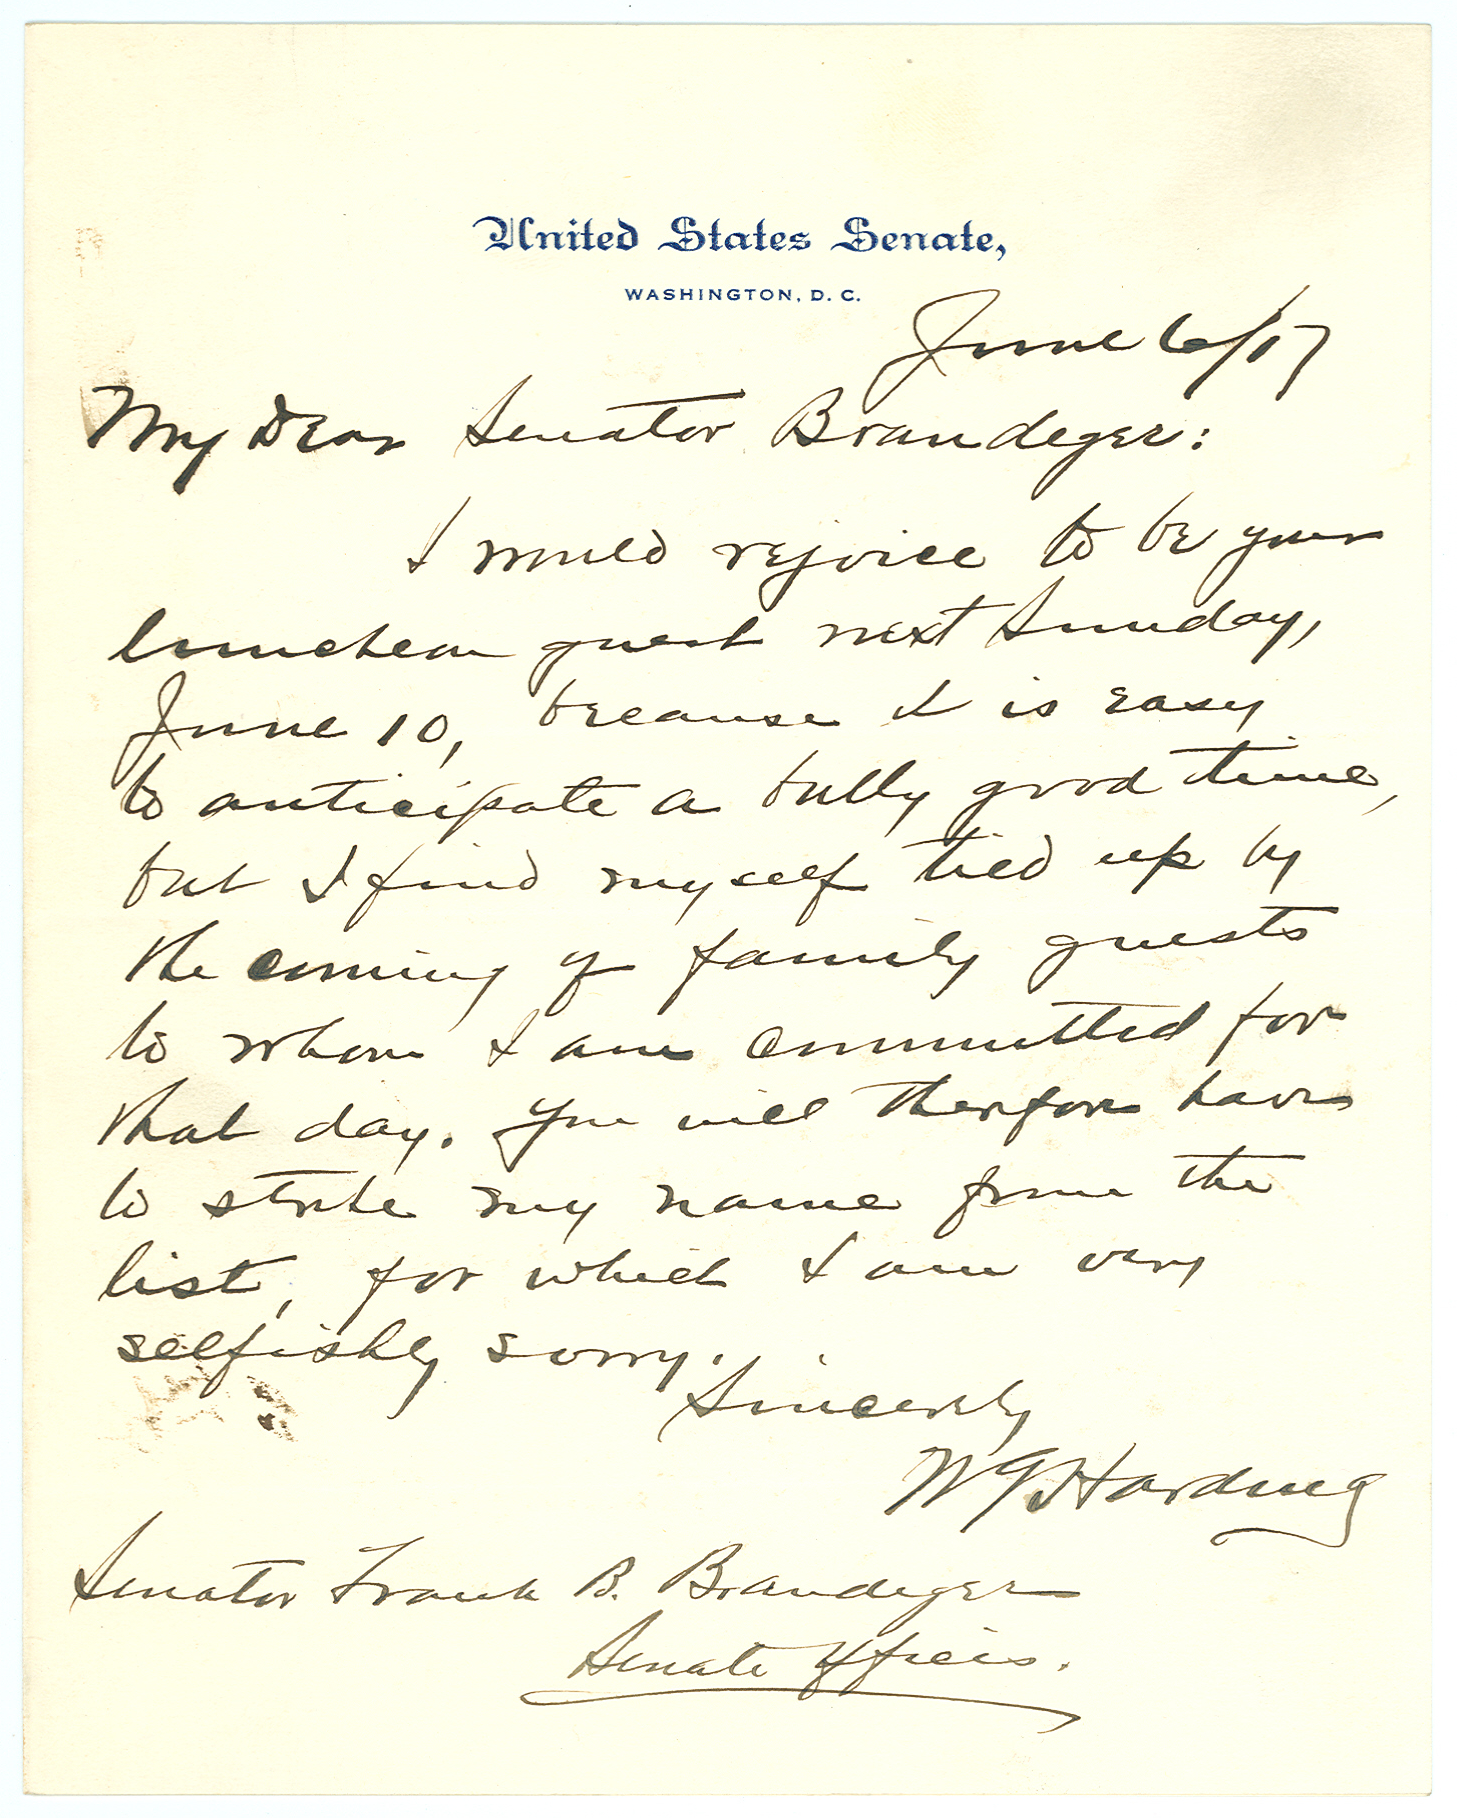 United States Senate,
WASHINGTON, D. C.
June 6/17
My Dear Senator Brandeger:
I would rejoice to be your
luncheon guest next Sunday,
June 10, because it is easy
to anticipate a bully good time,
but I find myself tied up by
the coming of family guests
to whom I am committed for
that day. You will therefore have
to strike my name from the
list, for which I am very
selfishly sorry.
Sincerely
WGHarding
Senator Frank B. Brandeger
Senate Offices.